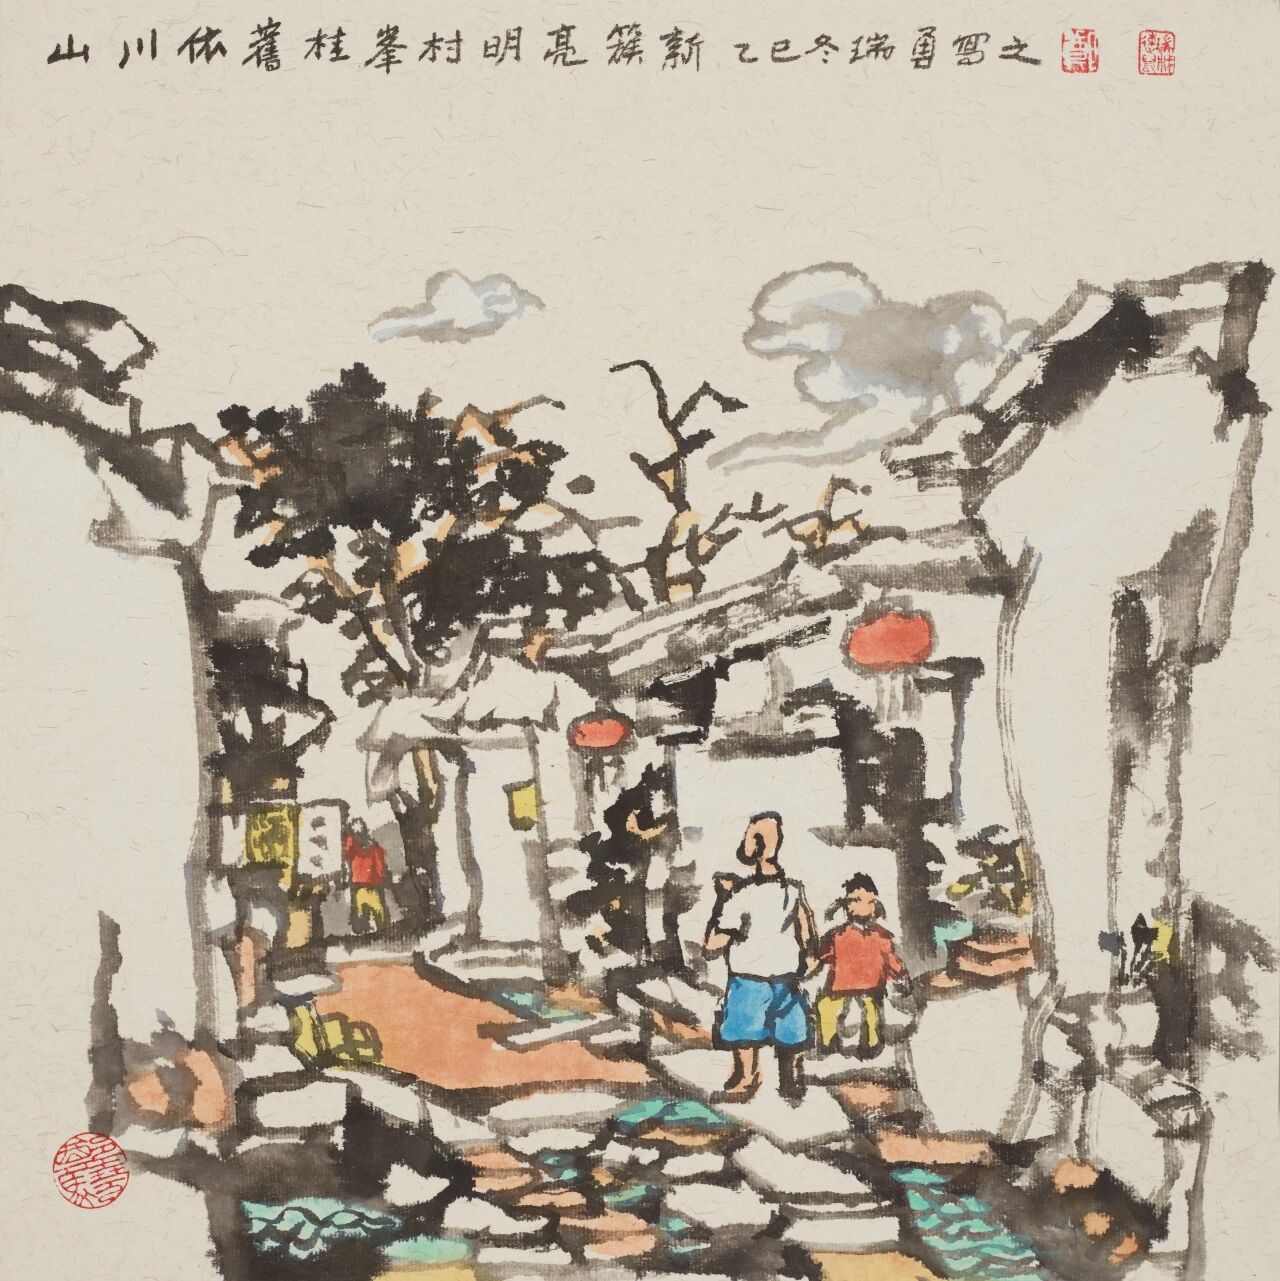 山川依舊桂峯村明亮簇新 乙巳冬瑞勇寫之